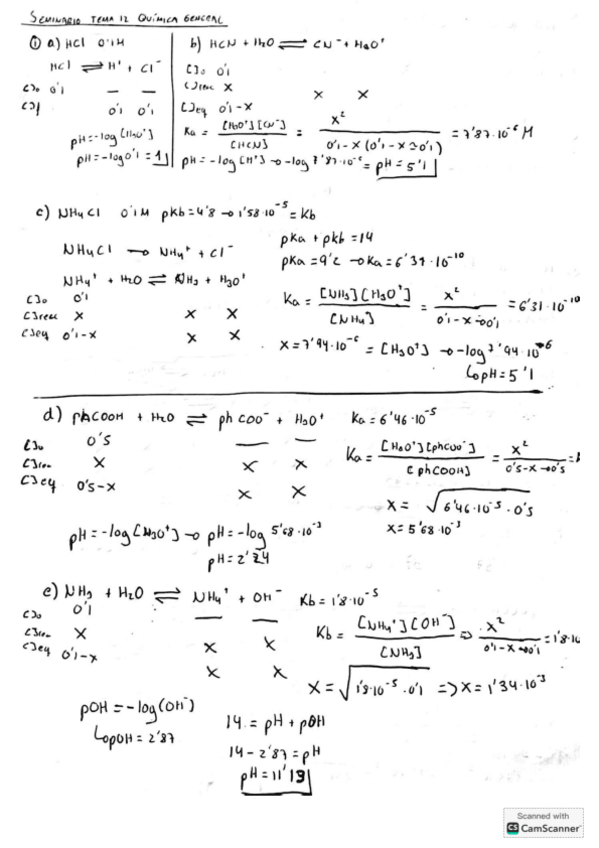 SEMINARIO TEMA 12 QUÍMICA GENERAL
① a) HCl 0'1M
HCl ⇌ H⁺ + Cl⁻
C]o 0'1 — —
C]f 0'1 0'1
pH=-log[H3O⁺]
pH=-log0'1=1
b) HCN + H2O ⇌ CN⁻ + H3O⁺
C]o 0'1
C]reac x x x
C]eq 0'1-x
Ka = [H3O⁺][CN⁻] / [HCN] = x² / 0'1-x (0'1-x≃0'1) = 7'87·10⁻⁶ M
pH=-log[H⁺] → -log 7'87·10⁻⁶ = pH=5'1
c) NH4Cl 0'1M pKb=4'8 → 1'58·10⁻⁵=Kb
NH4Cl → NH4⁺ + Cl⁻
NH4⁺ + H2O ⇌ NH3 + H3O⁺
C]o 0'1
C]reac x x x
C]eq 0'1-x x x
pKa + pKb = 14
pKa=9'2 → Ka=6'31·10⁻¹⁰
Ka = [NH3][H3O⁺] / [NH4] = x² / 0'1-x→0'1 = 6'31·10⁻¹⁰
x=7'94·10⁻⁶ = [H3O⁺] → -log 7'94·10⁻⁶
↳ pH=5'1
d) phCOOH + H2O ⇌ phCOO⁻ + H3O⁺ Ka=6'46·10⁻⁵
C]o 0'5 — —
C]reac x x x
C]eq 0'5-x x x
Ka = [H3O⁺][phCOO⁻] / [phCOOH] = x² / 0'5-x→0'5 =
x = √6'46·10⁻⁵·0'5
x=5'68·10⁻³
pH=-log[H3O⁺] → pH=-log 5'68·10⁻³
pH=2'24
e) NH3 + H2O ⇌ NH4⁺ + OH⁻ Kb=1'8·10⁻⁵
C]o 0'1 — —
C]reac x x x
C]eq 0'1-x x x
Kb = [NH4⁺][OH⁻] / [NH3] ⇒ x² / 0'1-x→0'1 = 1'8·10
x=√1'8·10⁻⁵·0'1 => x=1'34·10⁻³
pOH=-log(OH⁻)
↳ pOH=2'87
14 = pH + pOH
14-2'87=pH
pH=11'13
Scanned with
CS CamScanner